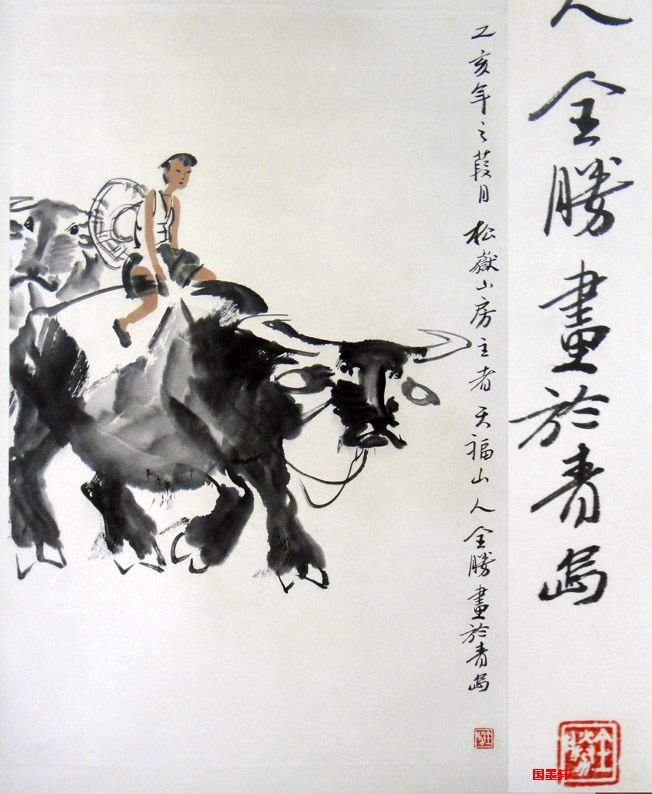 乙亥年之葭月 松嶽山房主者天福山人全勝畫於青島
人全勝畫於青島
国墨轩